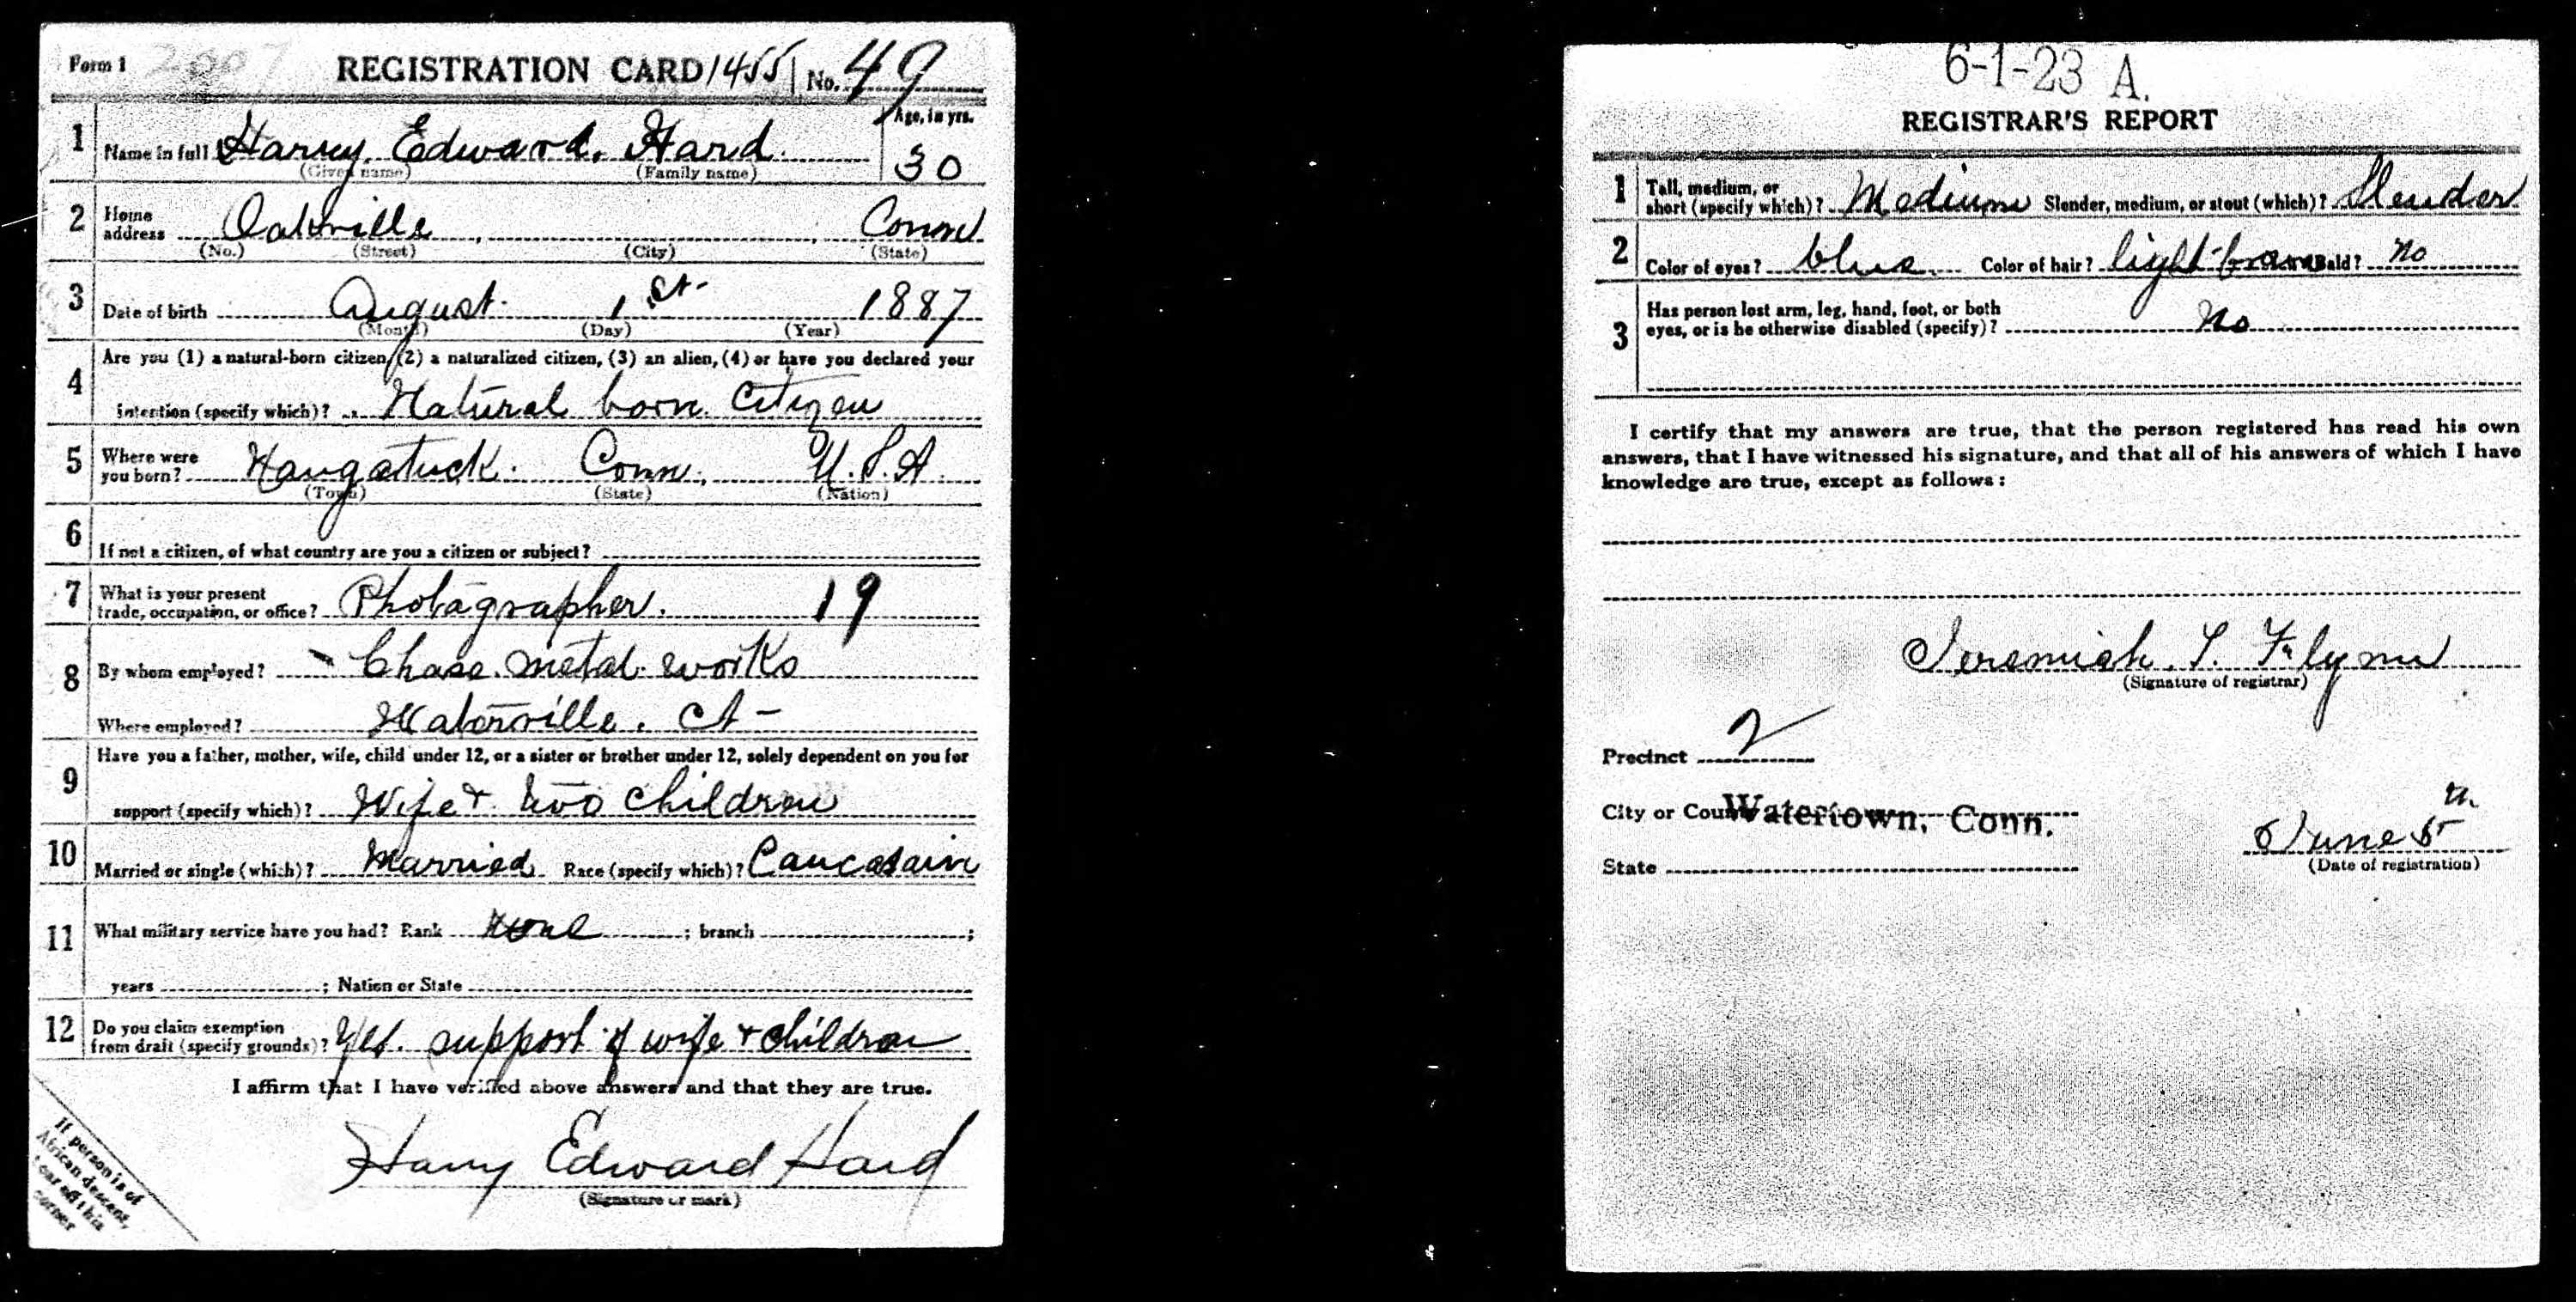 Form 1 2007 REGISTRATION CARD 1455 No. 49
1 Name in full Harry Edward Hard Age, in yrs. 30
(Given name) (Family name)
2 Home address Oakville Conn
(No.) (Street) (City) (State)
3 Date of birth August 1st 1887
(Month) (Day) (Year)
4 Are you (1) a natural-born citizen, (2) a naturalized citizen, (3) an alien, (4) or have you declared your
intention (specify which)? Natural born Citizen
5 Where were you born? Naugatuck. Conn. U.S.A.
(Town) (State) (Nation)
6 If not a citizen, of what country are you a citizen or subject?
7 What is your present trade, occupation, or office? Photographer. 19
8 By whom employed? Chase Metal Works
Where employed? Waterville. Ct-
9 Have you a father, mother, wife, child under 12, or a sister or brother under 12, solely dependent on you for
support (specify which)? Wife + two children
10 Married or single (which)? Married Race (specify which)? Caucasain
11 What military service have you had? Rank none ; branch ;
years ; Nation or State
12 Do you claim exemption from draft (specify grounds)? Yes. support of wife + children
I affirm that I have verified above answers and that they are true.
Harry Edward Hard
(Signature or mark)
If person is of
African descent,
tear off this
corner
6-1-23 A.
REGISTRAR'S REPORT
1 Tall, medium, or short (specify which)? Medium Slender, medium, or stout (which)? Slender
2 Color of eyes? blue Color of hair? light-brown Bald? no
3 Has person lost arm, leg, hand, foot, or both
eyes, or is he otherwise disabled (specify)? No
I certify that my answers are true, that the person registered has read his own
answers, that I have witnessed his signature, and that all of his answers of which I have
knowledge are true, except as follows:
Jeremiah. T. Flynn
(Signature of registrar)
Precinct 2
City or County Watertown, Conn.
State
June 5th
(Date of registration)